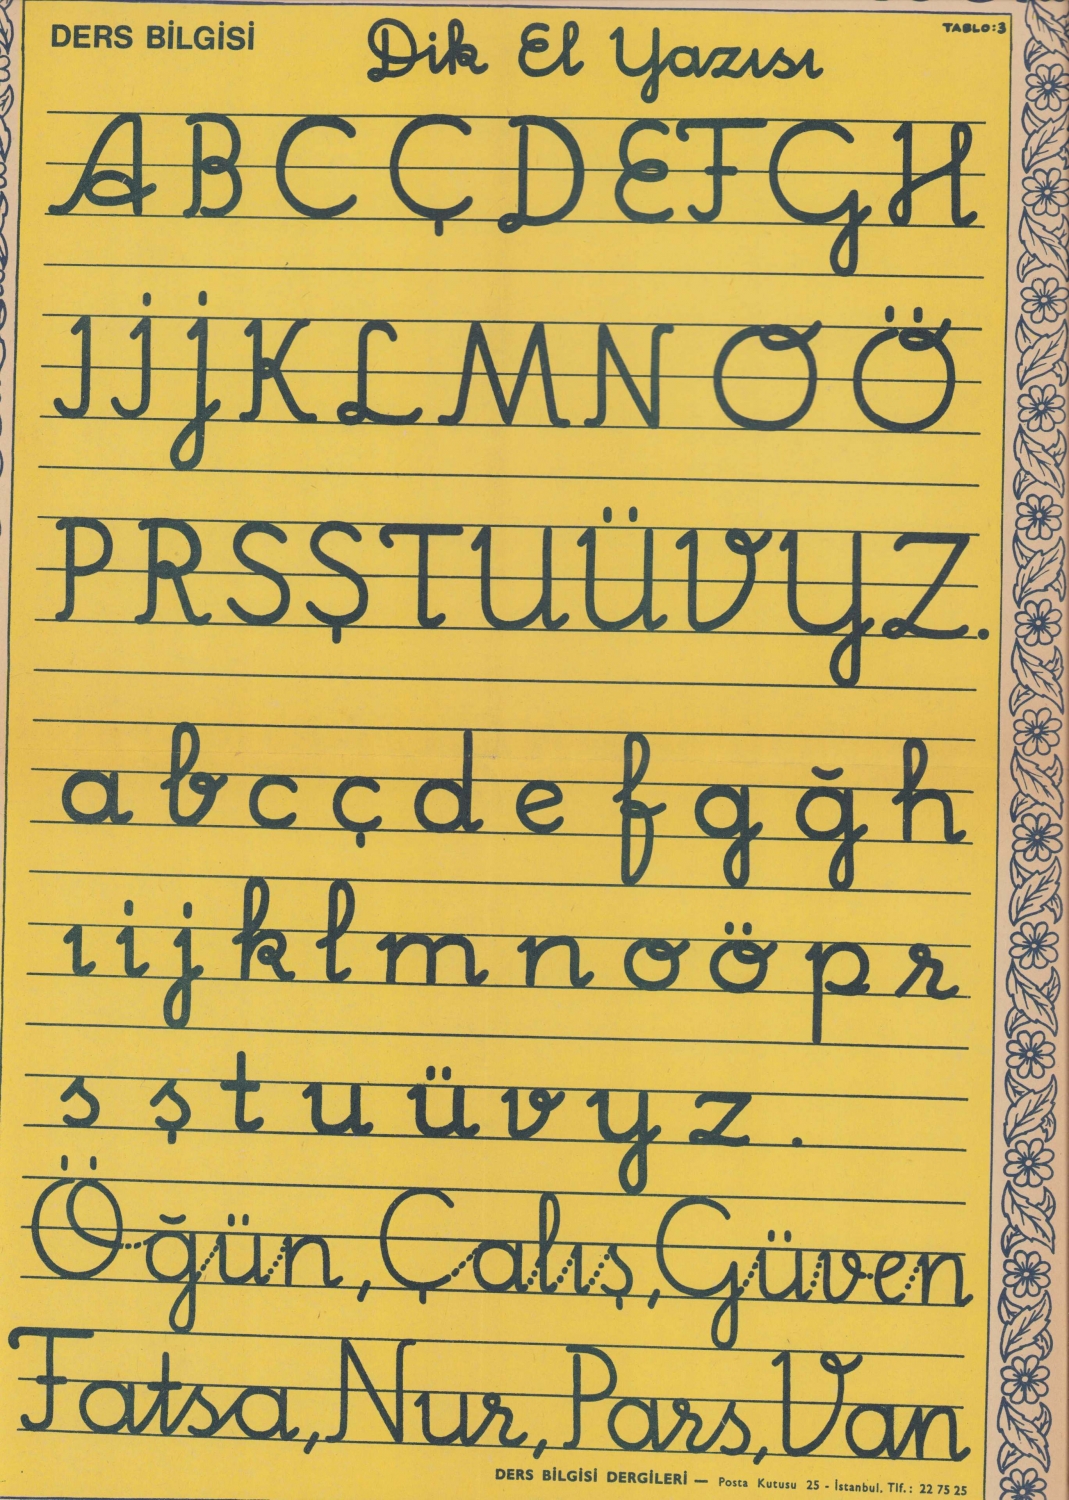 DERS BİLGİSİ
Dik El Yazısı
TABLO:3
A B C Ç D E F G H
I İ J K L M N O Ö
P R S Ş T U Ü V Y Z.
a b c ç d e f g ğ h
ı i j k l m n o ö p r
s ş t u ü v y z .
Öğün, Çalış, Güven
Fatsa, Nur, Pars, Van
DERS BİLGİSİ DERGİLERİ — Posta Kutusu 25 - İstanbul. Tlf.: 22 75 25